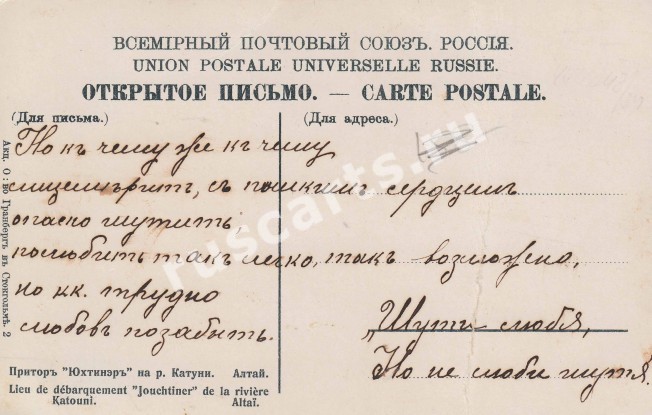 ВСЕМІРНЫЙ ПОЧТОВЫЙ СОЮЗЪ. РОССІЯ.
UNION POSTALE UNIVERSELLE RUSSIE.
ОТКРЫТОЕ ПИСЬМО. — CARTE POSTALE.
(Для письма.) (Для адреса.)
Но къ чему же къ чему
лицемѣрить, съ сердцемъ
опасно шутить,
полюбить такъ легко, такъ возможно,
но кк. трудно
любовъ позабыть.
„Шути любя,
Но не люби шутя.
Приторъ "Юхтинэръ" на р. Катуни. Алтай.
Lieu de débarquement "Jouchtiner" de la rivière
Katouni. Altaï.
Акц. О-во Гранбергъ въ Стокгольмѣ. 2
ruscarts.ru